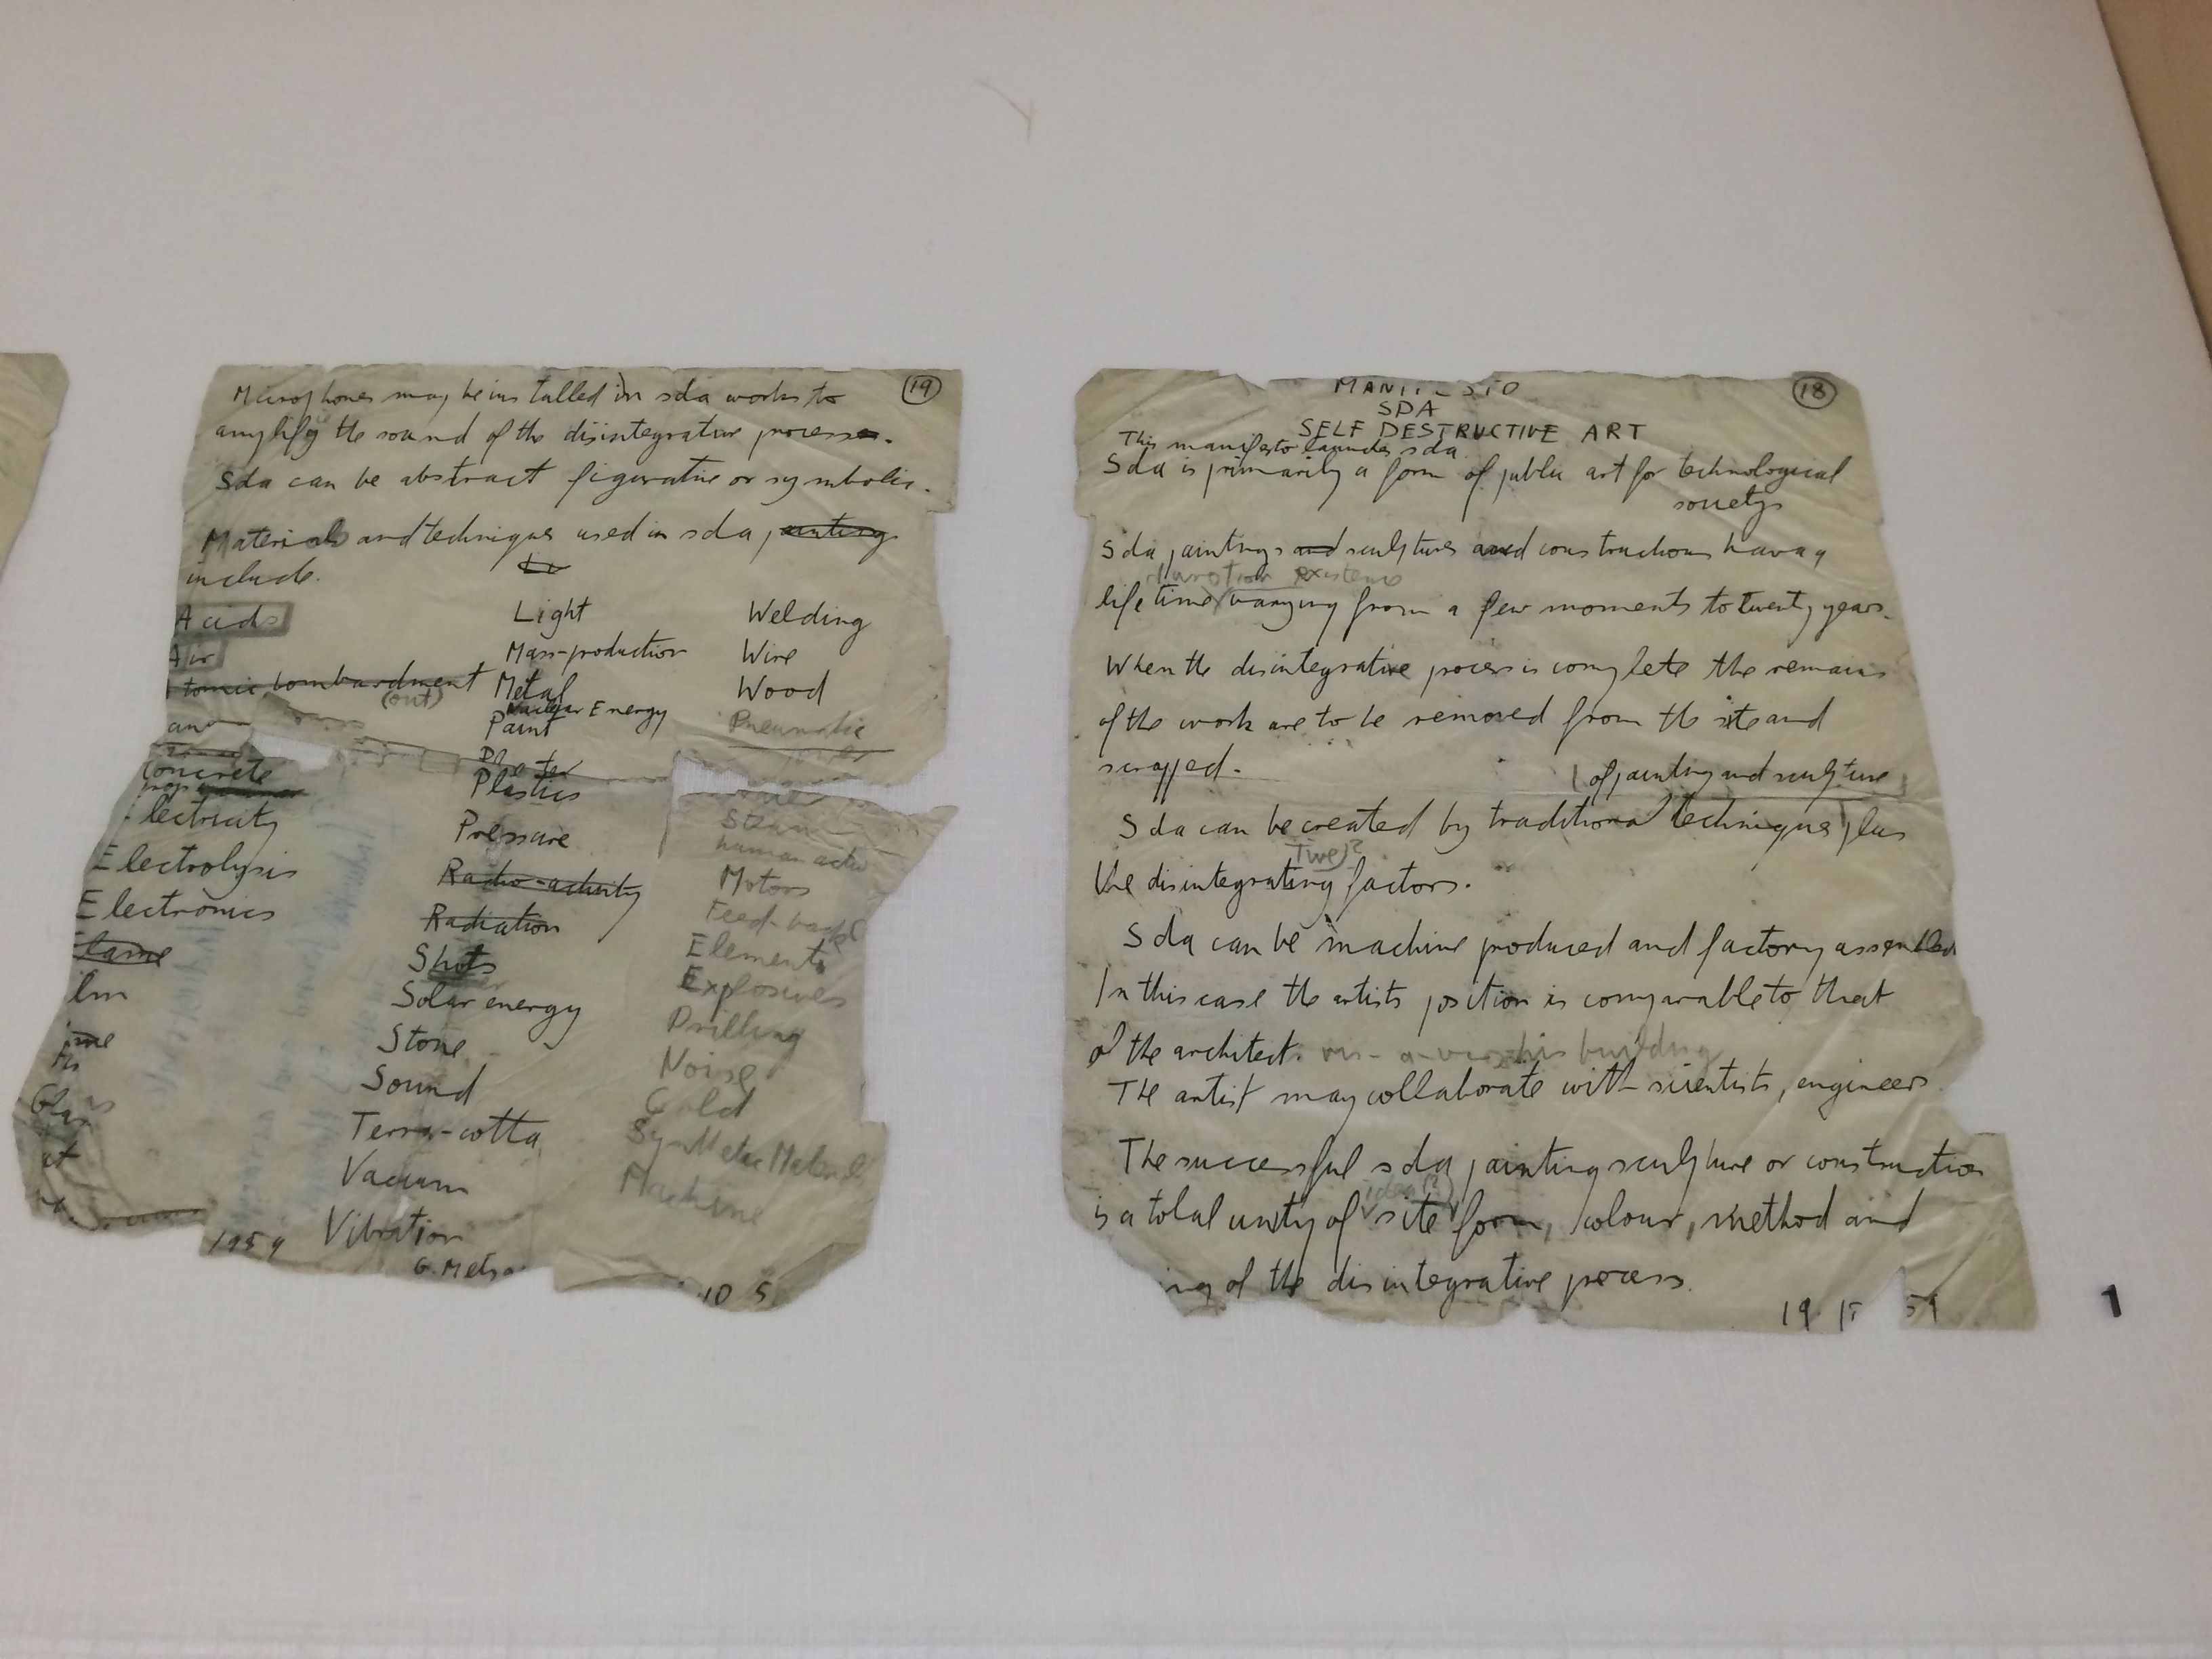 Microphones may be installed in sda works to
19
amplify the sound of the disintegrative process.
Sda can be abstract figurative or symbolic.
Materials and technique used in sda painting
include.
Acids
Air
tomic bombardment
(out)
Concrete
lectricity
Electrolysis
Electronics
lame
ilm
Glas
1959
Light
Mass-production
Metal
Nuclear Energy
Paint
Plaster
Plastics
Pressure
Radio-activity
Radiation
Shots
Solar energy
Stone
Sound
Terra-cotta
Vacuum
Vibration
G. Metz
Welding
Wire
Wood
Pneumatic
Steam
human
Motors
Feed-back
Elements
Explosives
Drilling
Noise
Cold
Synthetic Material
Machine
10 5
MANI STO
18
SDA
SELF DESTRUCTIVE ART
This manifesto launches sda
Sda is primarily a form of public art for technological
society
Sda paintings and sculptures and constructions have a
duration existence
life time varying from a few moments to twenty years.
When the disintegrative process is complete the remains
of the work are to be removed from the site and
scrapped.
(of painting and sculpture)
Sda can be created by traditional technique plus
Tive)?
the disintegrating factors.
Sda can be machine produced and factory assembled
In this case the artists position is comparable to that
of the architect. vis-a-vis his building
The artist may collaborate with scientists, engineers
The successful sda painting sculpture or construction
idea(?)
is a total unity of site form, colour, method and
ing of the disintegrative process.
19 59
1